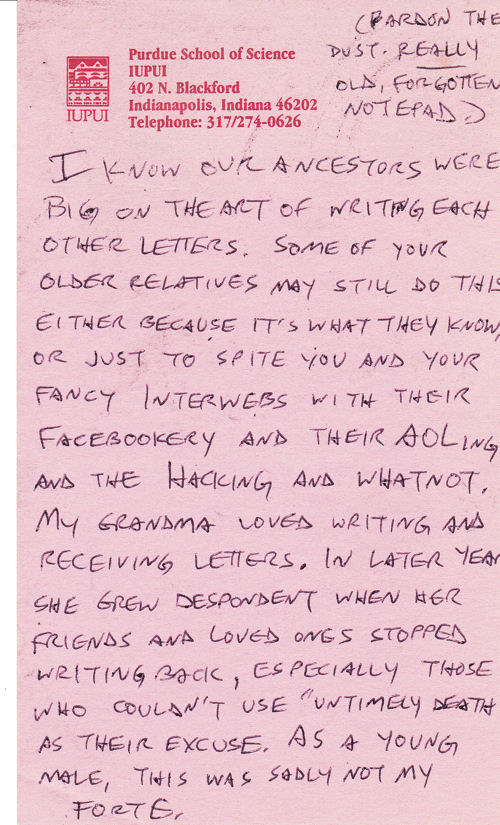 (PARDON THE
DUST. REALLY
OLD, FORGOTTEN
NOTEPAD.)
Purdue School of Science
IUPUI
402 N. Blackford
Indianapolis, Indiana 46202
Telephone: 317/274-0626
IUPUI
I KNOW OUR ANCESTORS WERE
BIG ON THE ART OF WRITING EACH
OTHER LETTERS. SOME OF YOUR
OLDER RELATIVES MAY STILL DO THIS
EITHER BECAUSE IT'S WHAT THEY KNOW,
OR JUST TO SPITE YOU AND YOUR
FANCY INTERWEBS WITH THEIR
FACEBOOKERY AND THEIR AOLING
AND THE HACKING AND WHATNOT.
MY GRANDMA LOVED WRITING AND
RECEIVING LETTERS. IN LATER YEAR
SHE GREW DESPONDENT WHEN HER
FRIENDS AND LOVED ONES STOPPED
WRITING BACK, ESPECIALLY THOSE
WHO COULDN'T USE "UNTIMELY DEATH
AS THEIR EXCUSE. AS A YOUNG
MALE, THIS WAS SADLY NOT MY
FORTE.